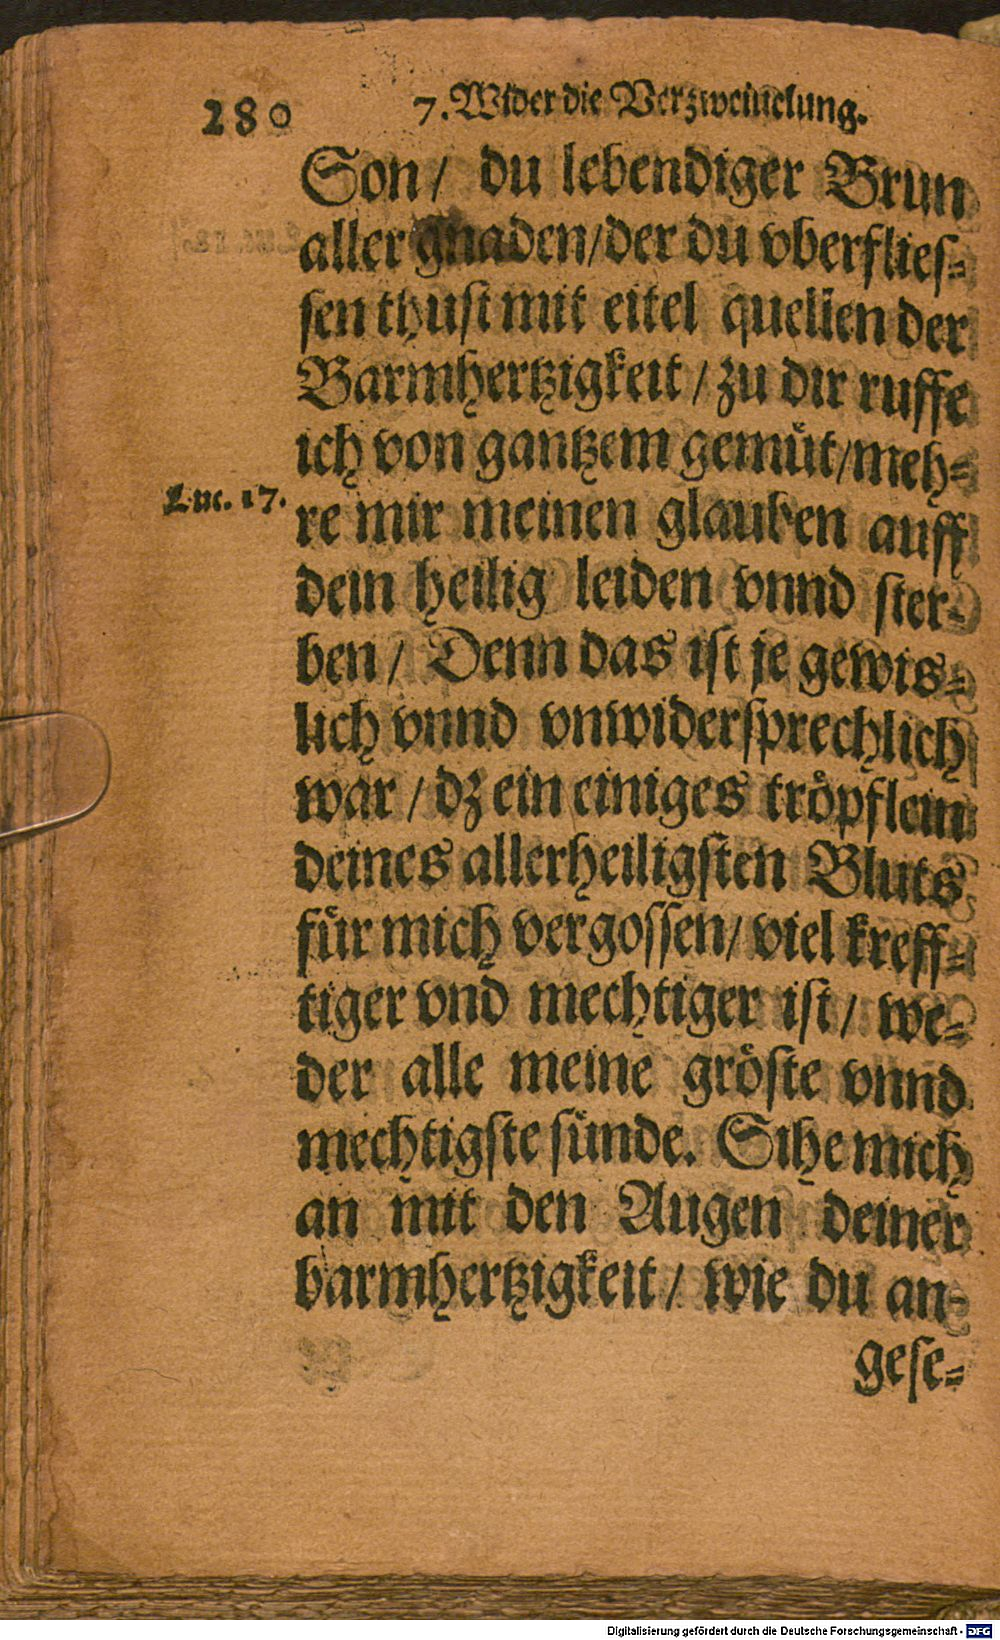 280 7. Wider die Verzweiuelung.
Son / du lebendiger Brun
aller gnaden / der du vberflies-
sen thust mit eitel quellen der
Barmhertzigkeit / zu dir ruffe
ich von gantzem gemüt / meh-
Luc. 17. re mir meinen glauben auff
dein heilig leiden vnnd ster-
ben / Denn das ist je gewis-
lich vnnd vnwidersprechlich
war / dz ein einiges tröpflein
deines allerheiligsten Bluts
für mich vergossen / viel kreff-
tiger vnd mechtiger ist / we-
der alle meine gröste vnnd
mechtigste sünde. Sihe mich
an mit den Augen deiner
barmhertzigkeit / wie du an-
gese-
Digitalisierung gefördert durch die Deutsche Forschungsgemeinschaft - DFG